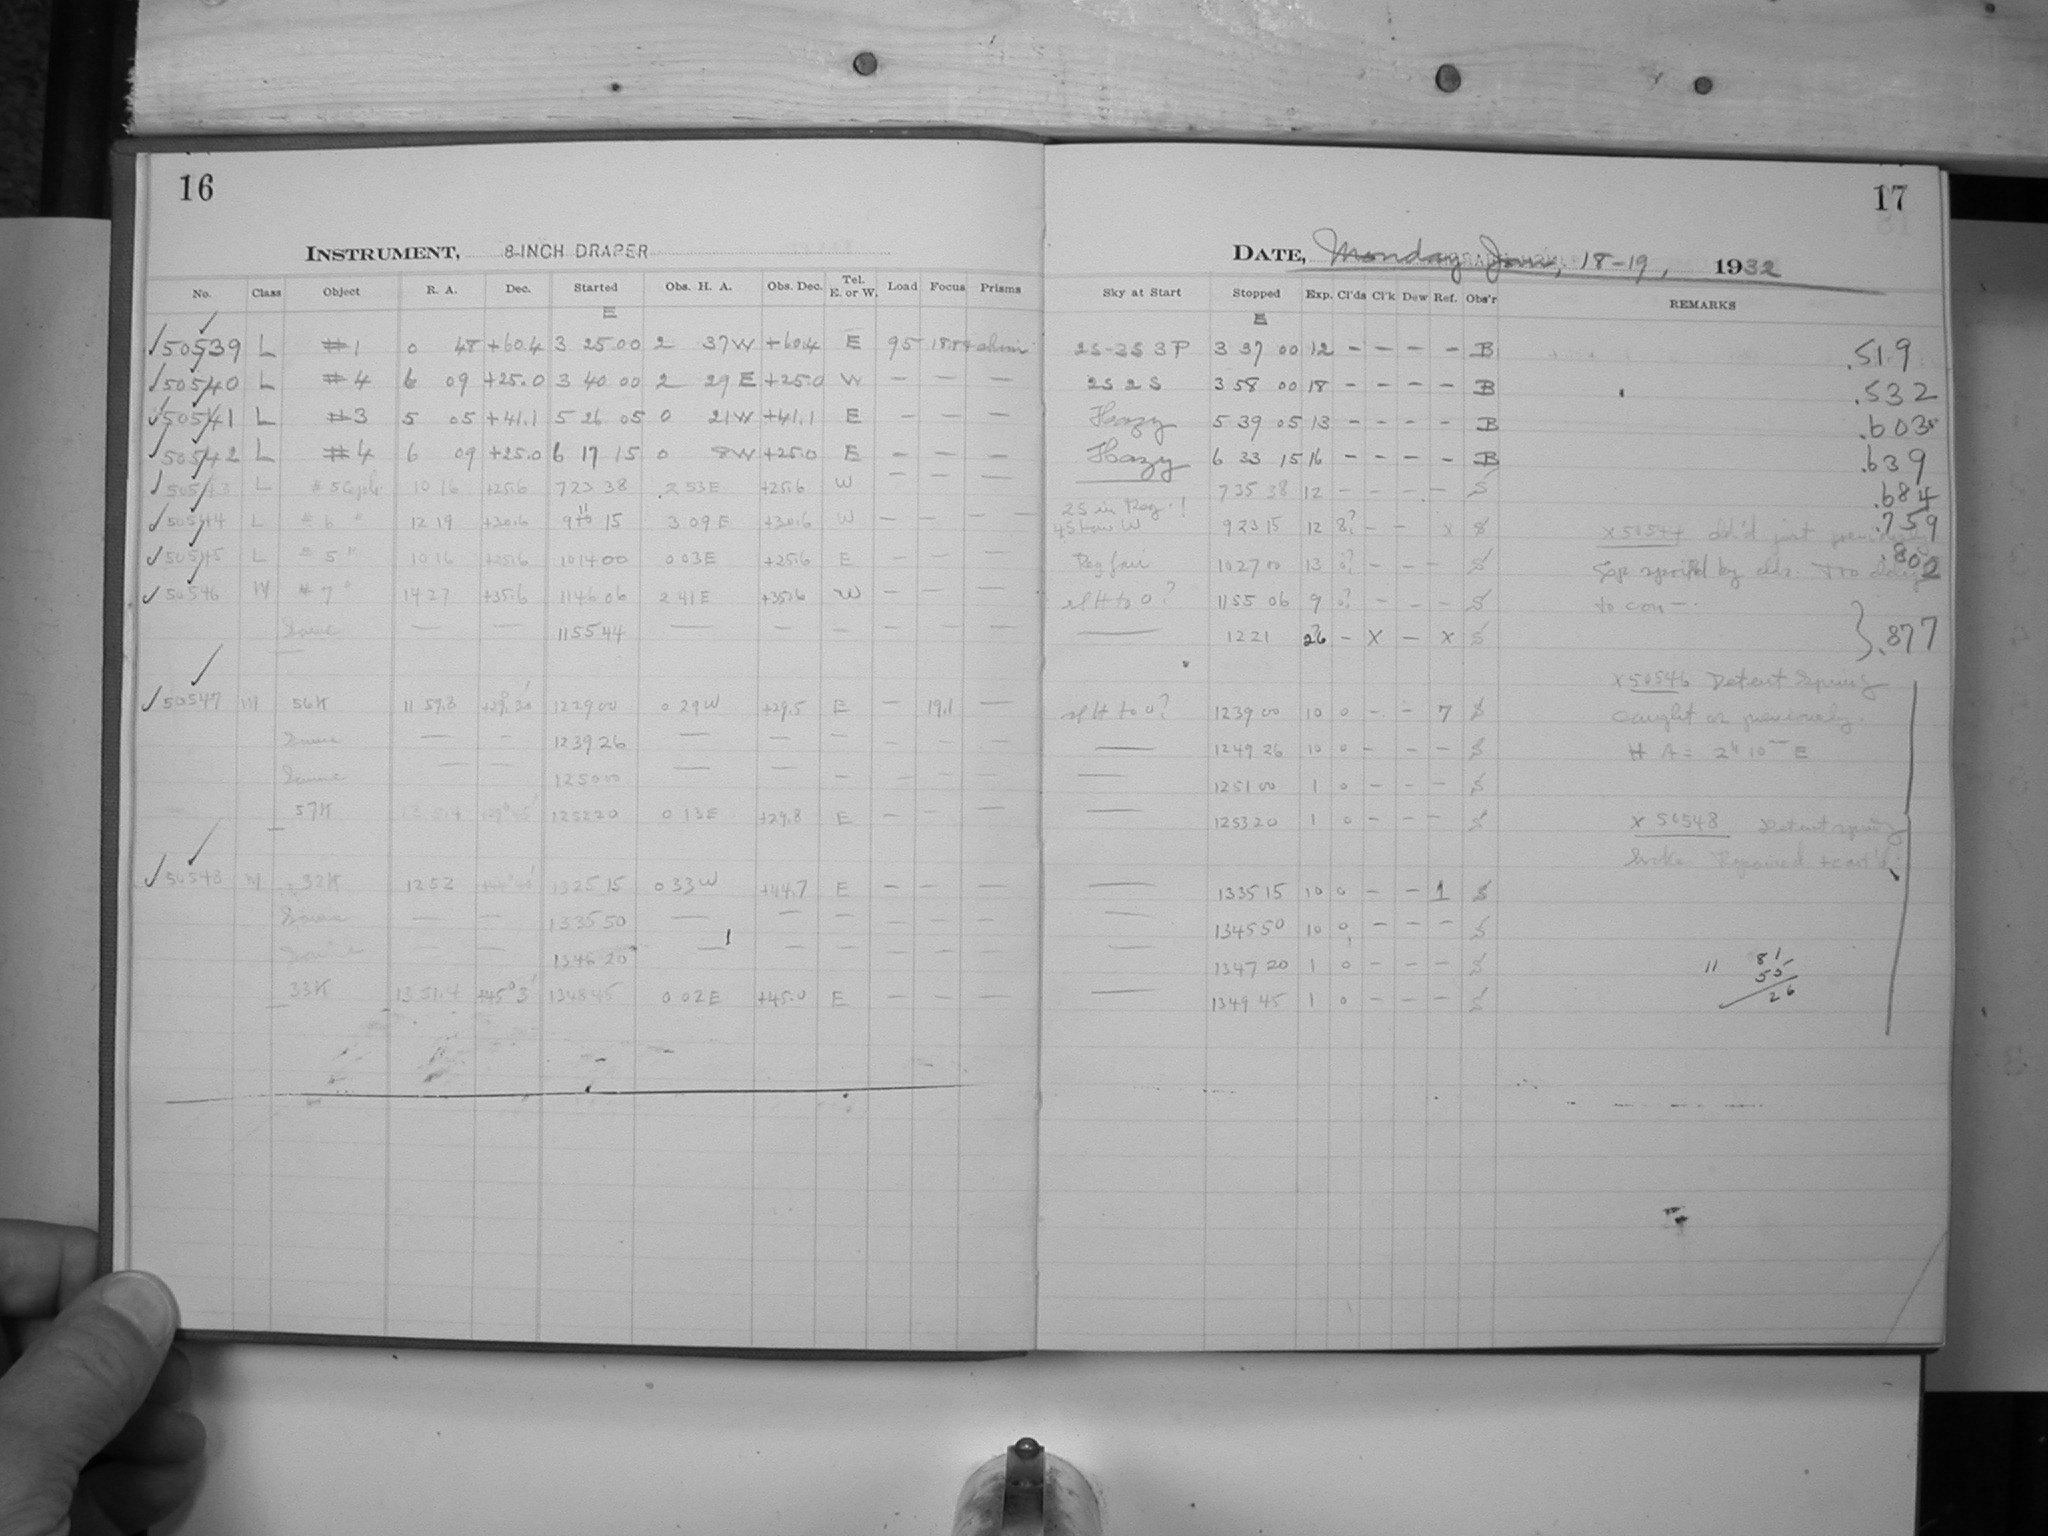 16
INSTRUMENT, 8-INCH DRAPER
No. Class Object R. A. Dec. Started Obs. H. A. Obs. Dec. Tel. E. or W. Load Focus Prisms
E
50539 L #1 0 48 +60.4 3 25 00 2 37W +60.4 E 95
50540 L #4 6 09 +25.0 3 40 00 2 29 E +25.0 W — — —
50541 L #3 5 05 +41.1 5 26 05 0 21W +41.1 E — — —
50542 L #4 6 09 +25.0 6 17 15 0 8W +25.0 E — — —
50543 L #5 10 16 +25.6 7 23 38 2 53E +25.6 W — — —
50544 L #6 " 12 19 +30.6 9 11 15 3 09 E +30.6 W — — —
50545 L #5 " 10 16 +25.6 10 14 00 0 03E +25.6 E — — —
50546 M #7 " 14 27 +35.6 11 46 06 2 41E +35.6 W — — —
Same — — 11 55 44 — — — — — —
50547 M 56K 11 57.3 +29° 30' 12 29 00 0 29W +29.5 E — 19.1 —
Same — — 12 39 26 — — — — — —
Same — — 12 50 00 — — — — — —
57K 13 5.4 +29° 45' 12 52 20 0 13E +29.8 E — — —
50548 M 32K 12 52 13 25 15 0 33W +44.7 E — — —
Same — — 13 35 50 — — — — — —
Same — — 13 46 20 — — — — — —
33K 13 51.4 +45° 3' 13 48 45 0 02E +45.0 E — — —
17
DATE, Monday Jan, 18-19, 1932
Sky at Start Stopped Exp. Cl'ds Cl'k Dew Ref. Obs'r REMARKS
E
2S-3S 3P 3 37 00 12 — — — — B .519
2S 2S 3 58 00 18 — — — — B .532
Hazy 5 39 05 13 — — — — B .603
Hazy 6 33 15 16 — — — — B .639
2S in Reg.! 7 35 38 12 — — — — S .684
9 23 15 12 8? — — x S x 50544 Cld'd just previously .759
Reg fair 10 27 00 13 0? — — — S Exp spoiled by clds. Too cloudy .802
sl H to 0? 11 55 06 9 0? — — — S to con—.
— 12 21 26 — x — x S .877
x 50546 Detent Spring
sl H to 0? 12 39 00 10 0 — — 7 S Caught as previously.
— 12 49 26 10 0 — — — S H A = 2h 10m E
— 12 51 00 1 0 — — — S
— 12 53 20 1 0 — — — S x 50548 Detent spring
broke. Repaired + cont'd.
— 13 35 15 10 0 — — 1 S
— 13 45 50 10 0 — — — S
— 13 47 20 1 0 — — — S 11 81
55
— 13 49 45 1 0 — — — S 26